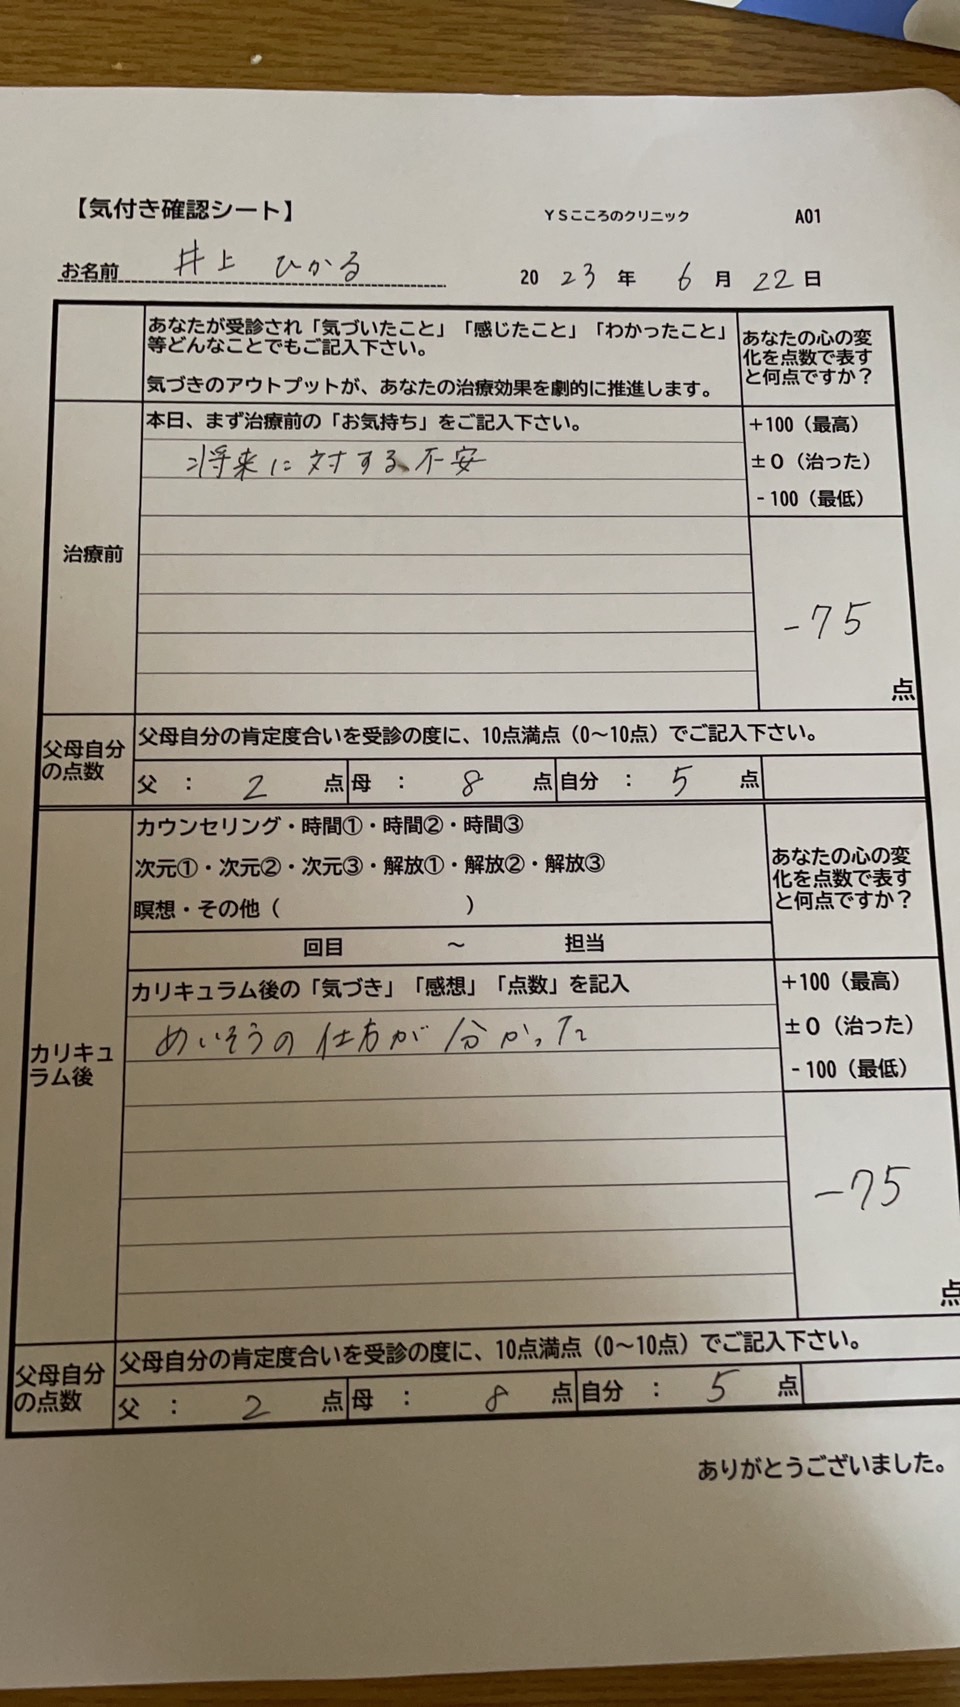 【気付き確認シート】 YSこころのクリニック A01
お名前 井上 ひかる 2023年 6月 22日
あなたが受診され「気づいたこと」「感じたこと」「わかったこと」
等どんなことでもご記入下さい。
気づきのアウトプットが、あなたの治療効果を劇的に推進します。
あなたの心の変
化を点数で表す
と何点ですか？
治療前
本日、まず治療前の「お気持ち」をご記入下さい。
将来に対する不安
+100（最高）
±0（治った）
-100（最低）
-75
点
父母自分
の点数
父母自分の肯定度合いを受診の度に、10点満点（0～10点）でご記入下さい。
父 ： 2 点 母 ： 8 点 自分 ： 5 点
カリキュ
ラム後
カウンセリング・時間①・時間②・時間③
次元①・次元②・次元③・解放①・解放②・解放③
瞑想・その他（ ）
回目 ～ 担当
あなたの心の変
化を点数で表す
と何点ですか？
カリキュラム後の「気づき」「感想」「点数」を記入
めいそうの仕方が分かった
+100（最高）
±0（治った）
-100（最低）
-75
点
父母自分
の点数
父母自分の肯定度合いを受診の度に、10点満点（0～10点）でご記入下さい。
父 ： 2 点 母 ： 8 点 自分 ： 5 点
ありがとうございました。